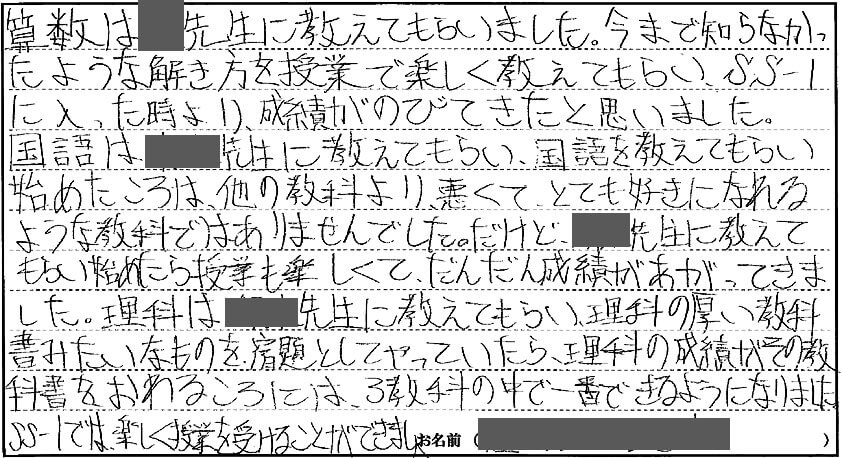 算数は 先生に教えてもらいました。今まで知らなかっ
たような解き方を授業で楽しく教えてもらい、SS-1
に入った時より、成績がのびてきたと思いました。
国語は、 先生に教えてもらい、国語を教えてもらい
始めたころは、他の教科より、悪くて、とても好きになれる
ような教科ではありませんでした。だけど、 先生に教えて
もらい始めたら授業も楽しくて、だんだん成績があがってきま
した。理科は 先生に教えてもらい、理科の厚い教科
書みたいなものを、宿題としてやっていたら、理科の成績がその教
科書をおわるころには、3教科の中で一番できるようになりました
SS-1では、楽しく授業を受けることができまし お名前 ( )